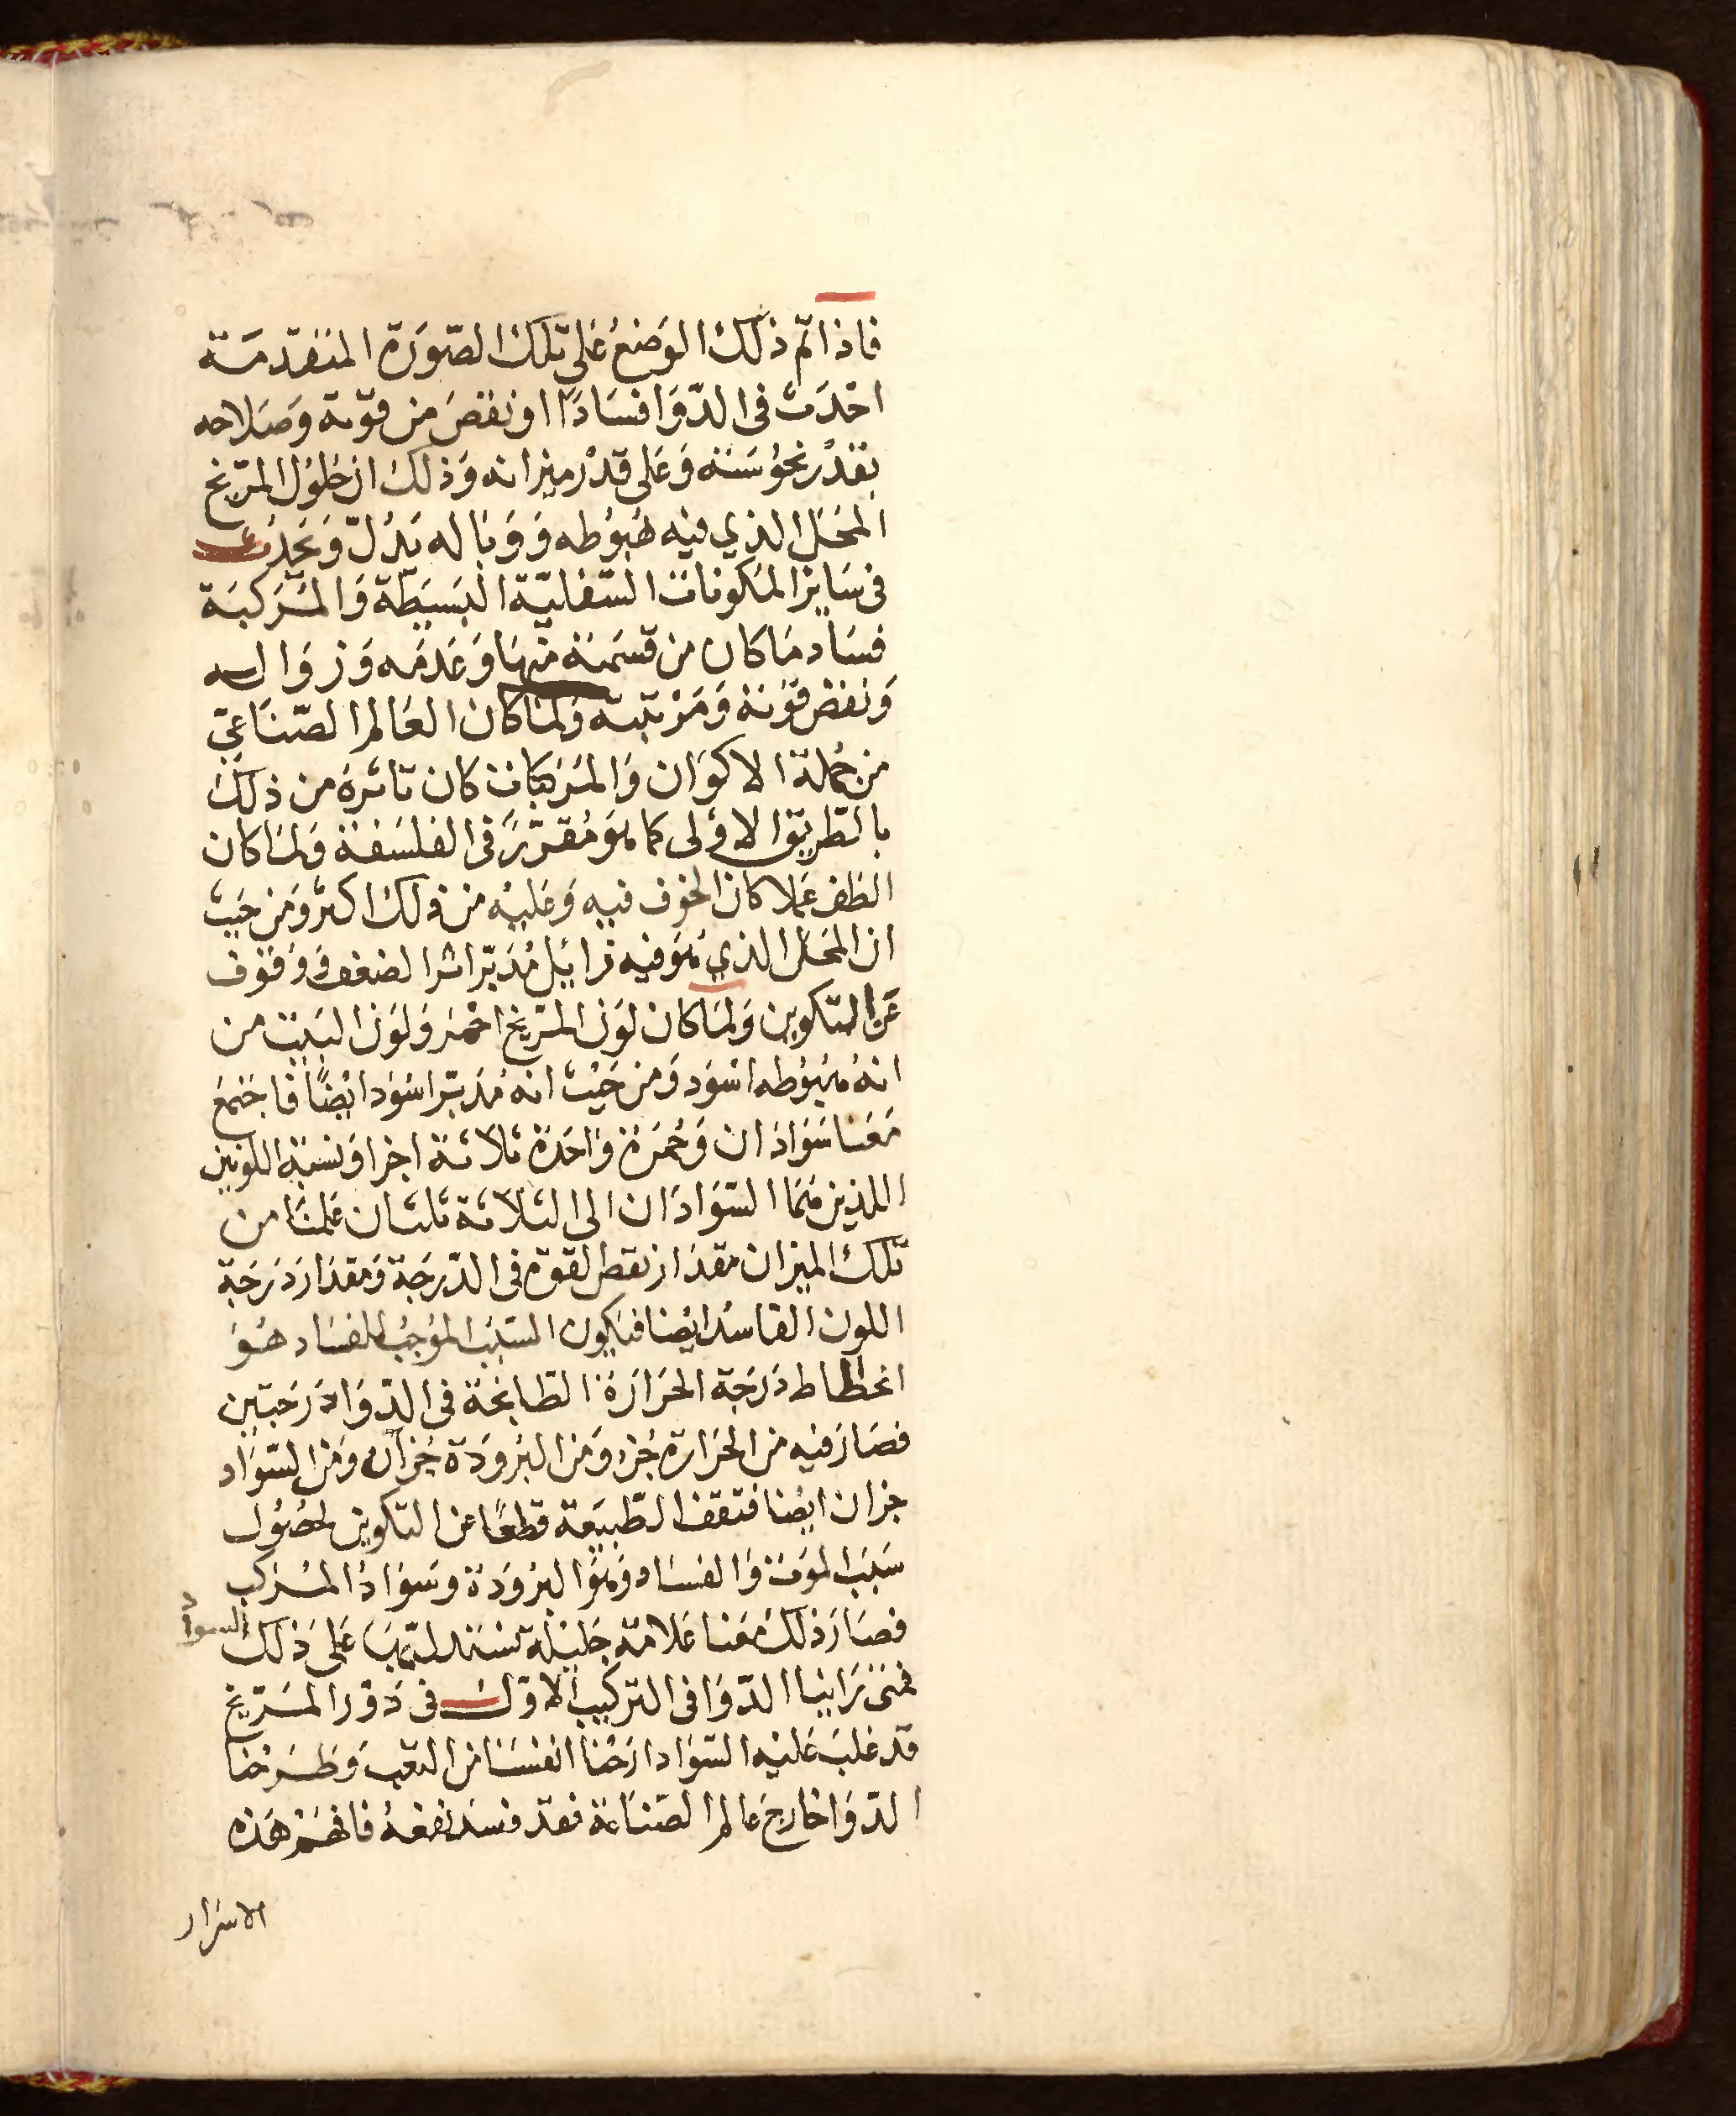 فاذا تم ذلك الوَضعُ عَلى تلك الصّورَة المتقدمَة
احْدَث في الدّوَا فسَادًا او نقصَ من قوّته وَصَلاحه
بقدْر نحوُسَته وَعَلى قدْر ميزانه وَذلك ان حُلوُل المرّيخ
المحَل الذي فيه هُبوُطه وَوَبَاله يَدُلّ وَيحَدُث
في سَاير المكوّنات السّفليّة البَسيَطة وَالمُرَكبَة
فسَاد مَا كان من قسمَته منهَا وَعَدمَه وَزوَاله
وَنقض قوّتة وَمَرْتبته وَلمّا كان العَالم الصّنَاعيّ
من جُملة الاكوَان وَالمُرَكبَات كان تاثرهُ من ذلك
بالطّريق الاوْلى كما هوَ مُقرّرٌ في الفلسَفة وَلمّا كان
الظفر عَملا كان الخوف فيه وَعَليْه من ذلك اكثر وَمن حَيث
ان المحَل الذي هوَ فيه زايَل مُدَبّرا شرا لضعف وَوُقوف
عَن التكوين وَلمّا كان لوَن المرّيخ احْمَر وَلوَن البَيت من
انهُ هبُوُطه اسْوَد وَمن حَيْث انه مُدَبّر اسْوَد ايْضًا فاجتمعَ
مَعَنا سَوَادَان وَحُمرَة وَاحدَة ثلاثة اجزا وَنسبَة اللونين
اللذين همَا السّوَادَان الى الثلاثة ثلثان عَلمنَا من
تلك الميزان مقدَار نقص القوة في الدّرَجَة وَمقدَار دَرَجَة
اللون الفاسُد ايْضا فيَكون السّبَب الموُجبُ للفسَاد هُوَ
انحطاط دَرَجَة الحَرَارَة الطابخَة في الدّوَا دَرَجَتين
فصَارَ فيه من الحَرَارة جُزء وَمن البُرُودَة جُزآن وَمن السّوَاد
جزان ايْضا فتقف الطّبيَعة قطعًا عن التكوين لحُصُول
سَبَب الموَت وَالفسَاد وَهوَ البرُودَة وَسوَادُ المُرَكب
فصَارَ ذلك مَعَنا عَلامَة جَليلة نستدل بهَا عَلى ذلك السواد
فمتىَ رَاينا الدّوَا في التركيب الاوّل في دَوْر المَرّيخ
قد غلبَ عَليْه السّوَاد ارَحْنا انفسَنا من التعب وَطَرَحْنا
الدّوَا خارجَ عالم الصّنَاعَة فقد فسَد نفعهُ فافهَمْ هَذه
الاسرَار